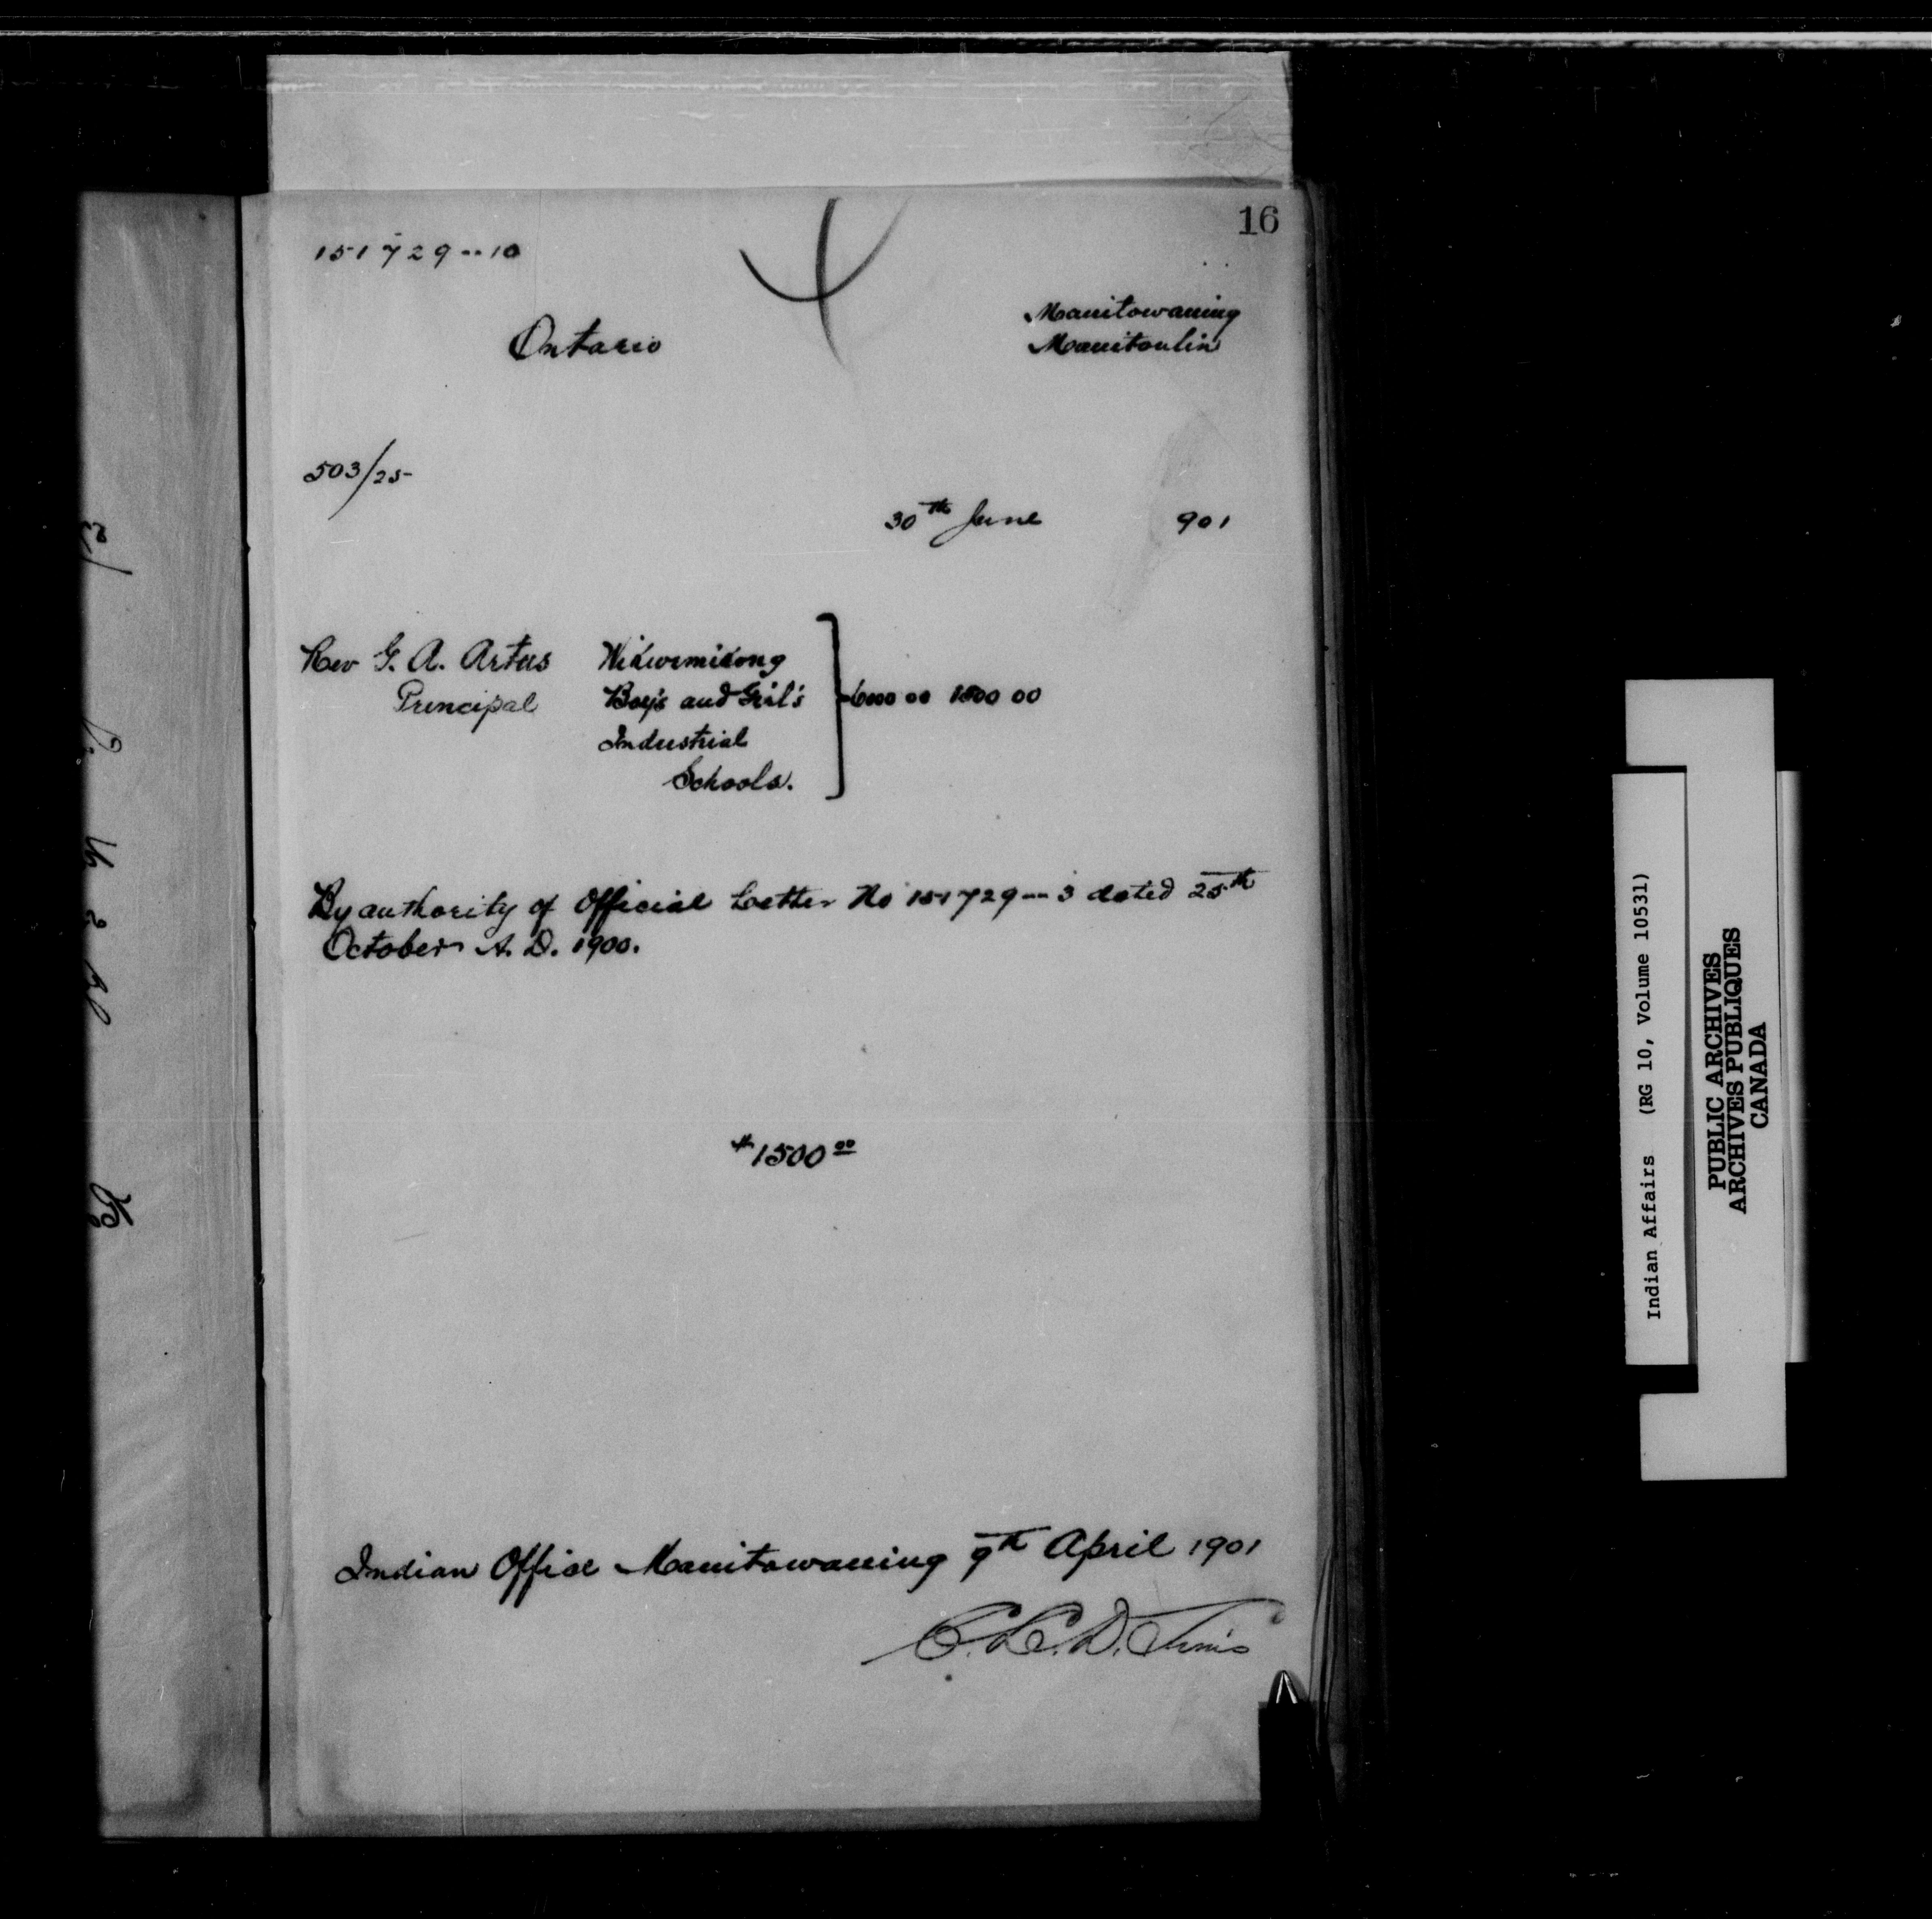 16
151729--10
Ontario
Manitowaning
Manitoulin
503/25
30th June 901
Rev G. A. Artus Wikwemikong
Principal Boy's and Girl's 6000 00 1500 00
Industrial
Schools.
By authority of Official Letter No 151729--3 dated 25th
October A. D. 1900.
$1500 00
Indian Office Manitowaning 9th April 1901
C. L. D. Sims
Indian Affairs (RG 10, Volume 10531)
PUBLIC ARCHIVES
ARCHIVES PUBLIQUES
CANADA